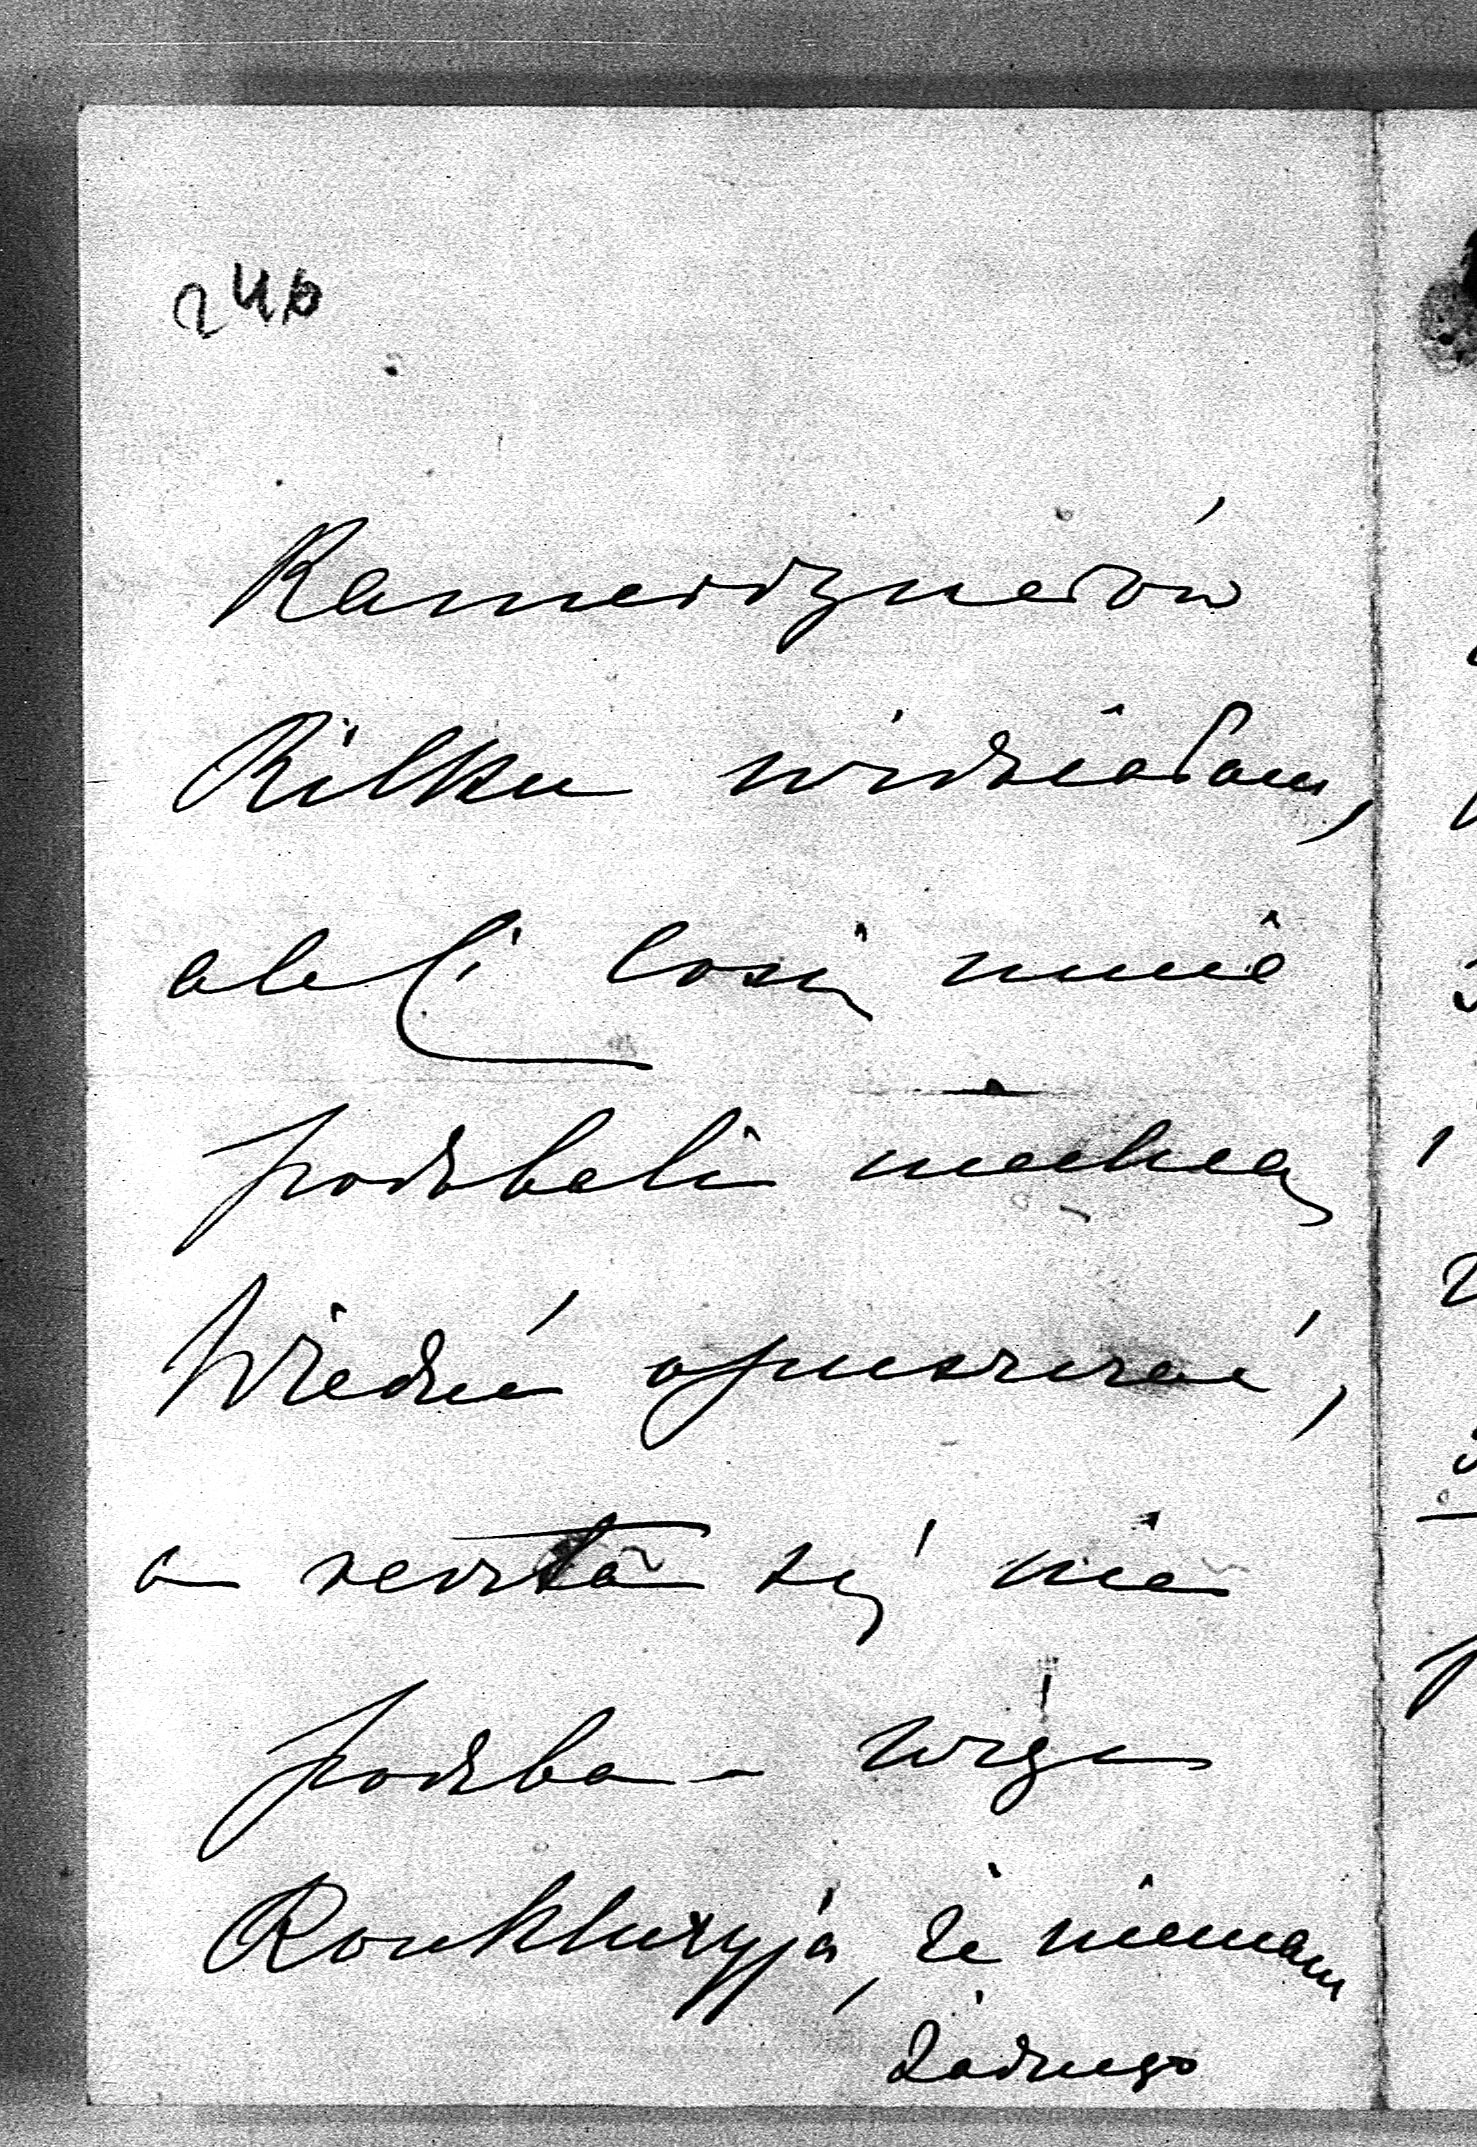 246
Kamerdynerów
Kilku widziałam,
ale ci co się mnie
podobali niechcą
Wiednia opuszczać,
a reszta się nie
podoba – więc
Konkluzyja, że niemam
żadnego